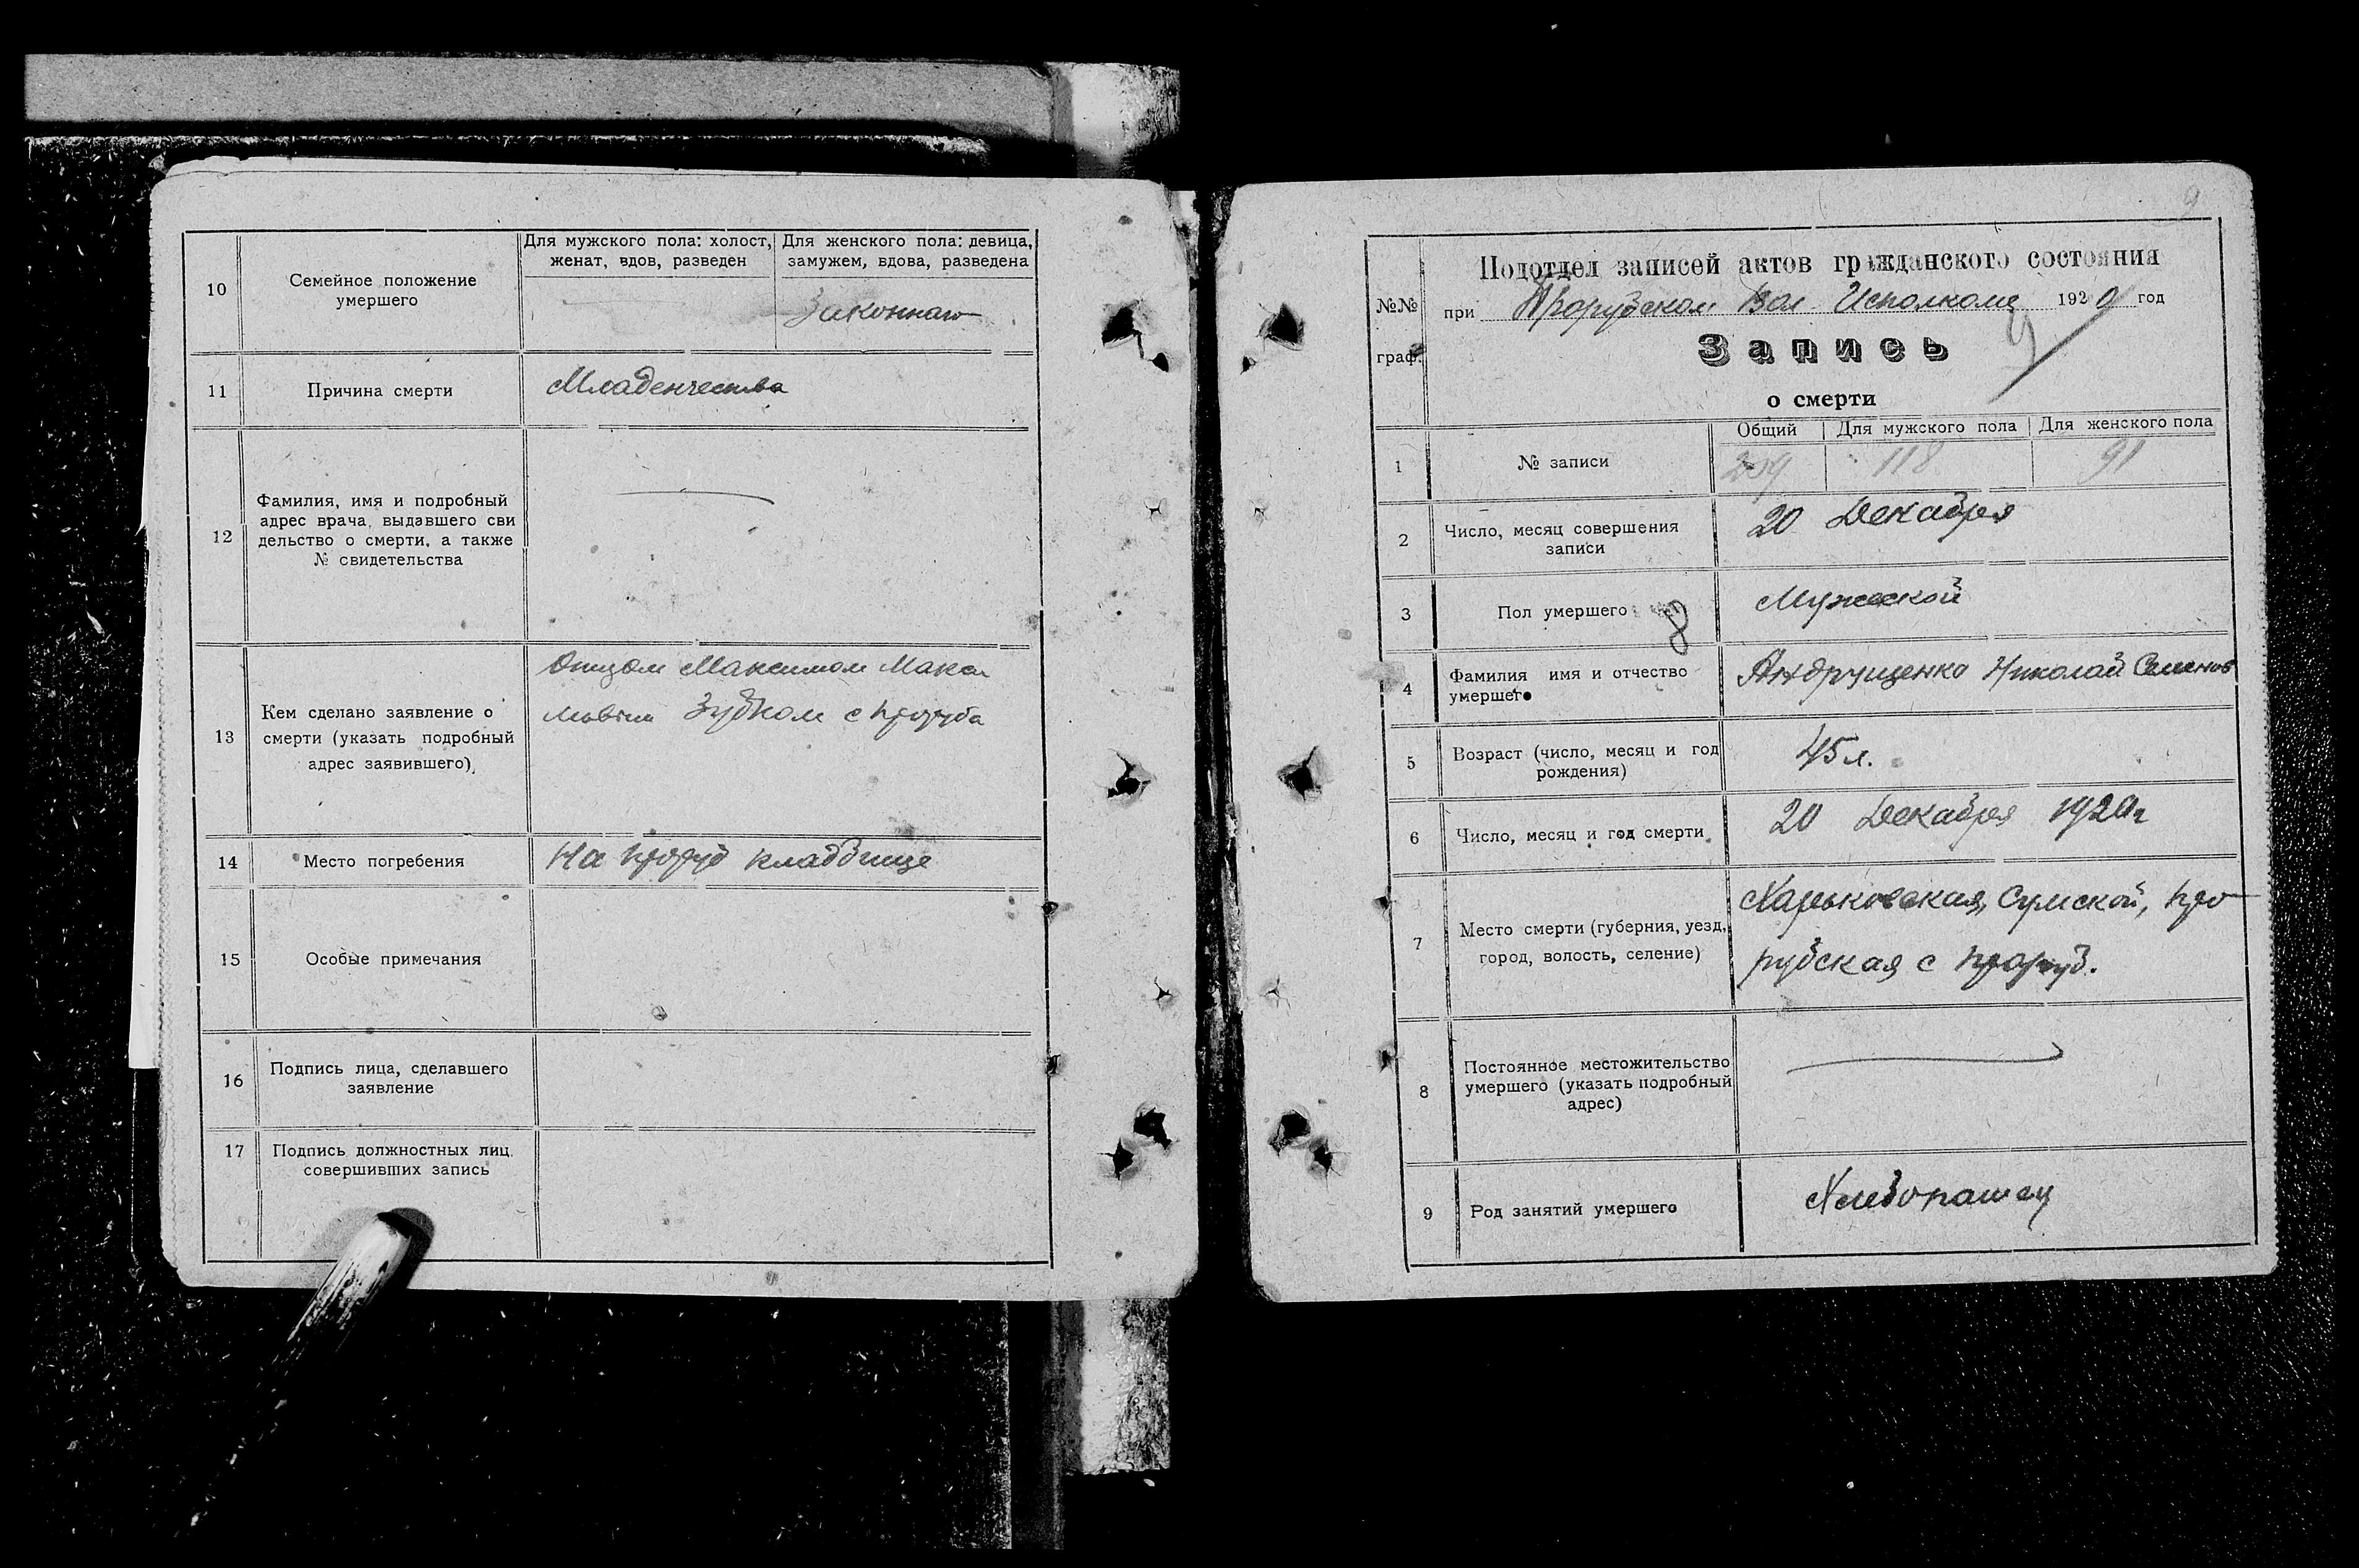 10
Семейное положение
умершего
Для мужского пола: холост,
женат, вдов, разведен
Для женского пола: девица,
замужем, вдова, разведена
Законнаго
11
Причина смерти
Младенчества
12
Фамилия, имя и подробный
адрес врача, выдавшего сви
дельство о смерти, а также
№ свидетельства
13
Кем сделано заявление о
смерти (указать подробный
адрес заявившего)
Отцом Максимом Макси
мовым Зубком с Проруба
14
Место погребения
На Проруб кладбище
15
Особые примечания
16
Подпись лица, сделавшего
заявление
17
Подпись должностных лиц,
совершивших запись
9
№№
граф.
Подотдел записей актов гражданского состояния
при Прорубском Вол Исполкоме 1920 год
9
Запись
о смерти
Общий
Для мужского пола
Для женского пола
1
№ записи
209
118
91
2
Число, месяц совершения
записи
20 Декабря
3
Пол умершего
8
Мужской
4
Фамилия имя и отчество
умершего
Андрущенко Николай Семенов
5
Возраст (число, месяц и год
рождения)
45 л.
6
Число, месяц и год смерти
20 Декабря 1920 г
7
Место смерти (губерния, уезд,
город, волость, селение)
Харьковская, Сумской, Про
рубская с Проруб.
8
Постоянное местожительство
умершего (указать подробный
адрес)
9
Род занятий умершего
Хлебопашец